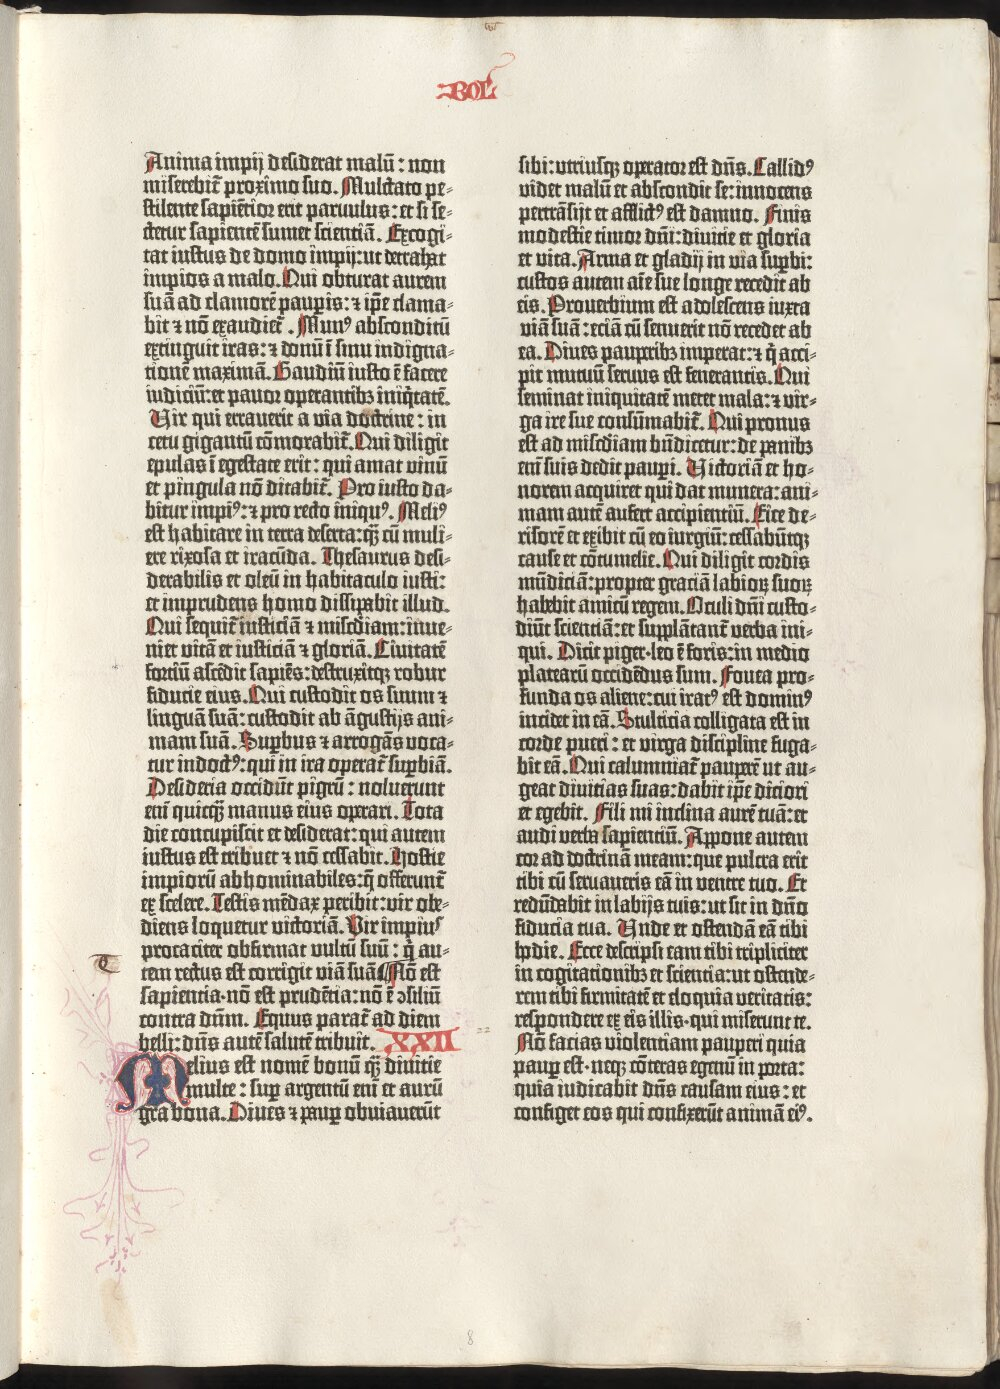 BOL
Anima impij desiderat malū: non
miserebit̄ proximo suo. Mulctato pe⸗
stilente sapiētior erit paruulus: et si se⸗
ctetur sapientē sumet scientiā. Excogi⸗
tat iustus de domo impij: ut detrahat
impios a malo. Qui obturat aurem
suā ad clamorē paupis: ⁊ ip̄e clama⸗
bit ⁊ nō exaudiet̄. Munꝰ absconditū
extinguit iras: ⁊ donū ī sinu indigna⸗
tionē maximā. Gaudiū iusto ē facere
iudiciū: et pauor operantibꝫ iniq̇tatē.
Vir qui errauerit a via doctrine: in
cetu gigantū cōmorabit̄. Qui diligit
epulas ī egestate erit: qui amat vinū
et pinguia nō ditabit̄. Pro iusto da⸗
bitur impiꝰ: ⁊ pro recto iniquꝰ. Meliꝰ
est habitare in terra deserta: q̄ꝫ cū muli⸗
ere rixosa et iracūda. Thesaurus desi⸗
derabilis et oleū in habitaculo iusti:
et imprudens homo dissipabit illud.
Qui sequit̄ iusticiā ⁊ misc̄diam: inue⸗
niet vitā et iusticiā ⁊ gloriā. Ciuitatē
fortiū ascēdit sapiēs: destruxitqꝫ robur
fiducie eius. Qui custodit os suum ⁊
linguā suā: custodit ab āgustijs ani⸗
mam suā. Suꝑbus ⁊ arrogās voca⸗
tur indoctꝰ: qui in ira operat̄ suꝑbiā.
Desideria occidūt pigrū: noluerunt
eni quicq̄ꝫ manus eius operari. Tota
die concupiscit et desiderat: qui autem
iustus est tribuet ⁊ nō cessabit. Hostie
impiorū abhominabiles: q̄ offerunt̄
ex scelere. Testis mēdax peribit: vir obe⸗
diens loquetur victoriā. Vir impiuˢ
procaciter obfirmat vultū suū: q̇ au⸗
tem rectus est corrigit viā suā. Nō est
sapientia· nō est prudētia: nō ē ↄsiliū
contra dn̄m. Equus parat̄ ad diem
belli: dn̄s autē salutē tribuit. XXII
Melius est nomē bonū q̄ꝫ diuitie
multe: suꝑ argentū eni et aurū
gr̄a bona. Diues ⁊ pauꝑ obuiauerūt
sibi: utriusqꝫ operator est dn̄s. Callidꝰ
videt malū et abscondit se: innocens
pertrāsijt et afflictꝰ est damno. Finis
modestie timor dn̄i: diuitie et gloria
et vita. Arma et gladij in via suꝑbi:
custos autem aīe sue longe recedit ab
eis. Prouerbium est adolescens iuxta
viā suā: eciā cū senuerit nō recedet ab
ea. Diues pauperibꝫ imperat: ⁊ q̇ acci⸗
pit mutuū seruus est fenerantis. Qui
seminat iniquitatē metet mala: ⁊ vir⸗
ga ire sue consūmabit̄. Qui pronus
est ad misc̄diam bn̄dicetur: de panibꝫ
eni suis dedit pauꝑi. Victoriā et ho⸗
norem acquiret qui dat munera: ani⸗
mam autē aufert accipientiū. Eice de⸗
risorē et exibit cū eo iurgiū: cessabūtqꝫ
cause et cōtumelie. Qui diligit cordis
mūdiciā: propter graciā labioꝝ suoꝝ
habebit amicū regem. Oculi dn̄i custo⸗
diūt scienciā: et supplātant̄ verba ini⸗
qui. Dicit piger· leo ē foris: in medio
platearū occidēdus sum. Fouea pro⸗
funda os aliene: cui iratꝰ est dominꝰ
incidet in eā. Stulticia colligata est in
corde pueri: et virga discipline fuga⸗
bit eā. Qui calumniat̄ pauperē ut au⸗
geat diuitias suas: dabit ip̄e diciori
et egebit. Fili mi inclina aurē tuā: et
audi verba sapientiū. Appone autem
cor ad doctrinā meam: que pulcra erit
tibi cū seruaueris eā in ventre tuo. Et
redūdabit in labijs tuis: ut sit in dn̄o
fiducia tua. Unde et ostendā eā tibi
hodie. Ecce descripsi eam tibi tripliciter
in cogitationibꝫ et sciencia: ut ostende⸗
rem tibi firmitatē et eloquia veritatis:
respondere ex eis illis· qui miserunt te.
Nō facias violentiam pauperi quia
pauꝑ est· neqꝫ cōteras egenū in porta:
quia iudicabit dn̄s causam eius: et
configet eos qui confixerūt animā eiꝰ.
8